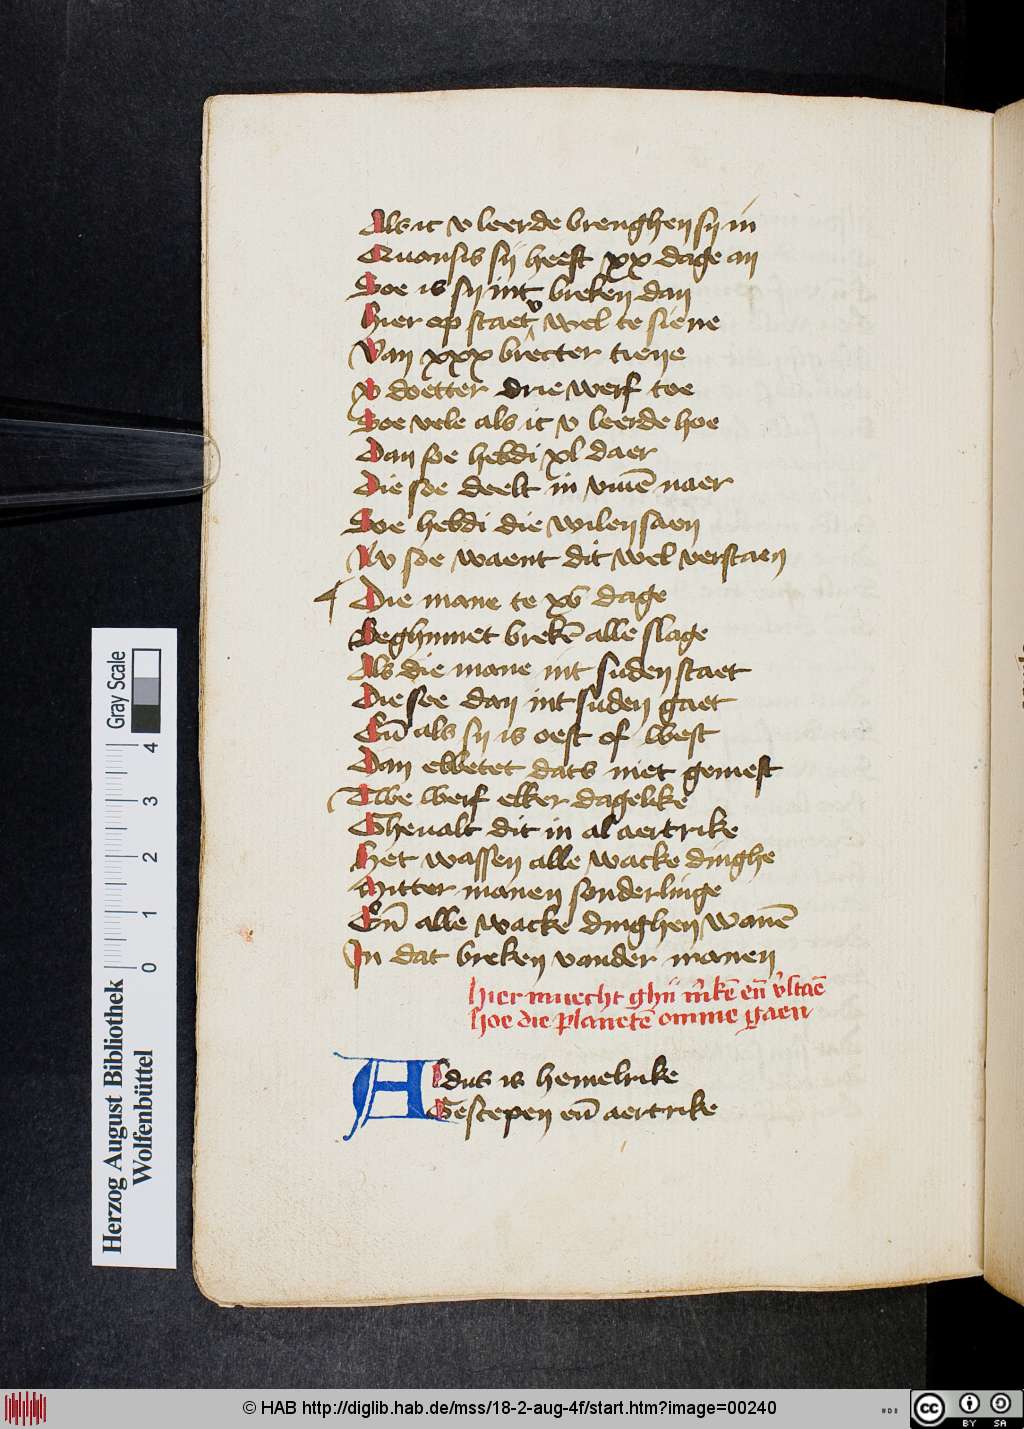 Als ic v leerde brenghen sy in
Quansis sij heeft xx dage an
Soe is sy int breken dan
hier op staet v wel te siene
Van xxx brecter tiene
v doetter drie werf toe
Soe vele als ic v leerde hoe
Dan soe hebdi xl daer
Die soe deelt in naer
Soe hebdi die wilen saen
Nv soe waent dit wel verstaen
Die mane te xv dage
Beghinnet brekē alle slage
Als die mane int suden staet
Die see dan int suden gaet
Eñ als sy is oest of west
Dan ebbetet dats niet gemest
Twe werf elker dagelike
Gheualt dit in al aertrike
Het wassen alle wacke dinghe
Mitter manen sonderlinge
Eñ alle wacke dinghen wanē
In dat breken vander manen
hier muecht ghij m̄kē eñ v̄staē
hoe die planetē omme gaen
Aldus is hemelrike
Gescepen eñ aertrike
Herzog August Bibliothek
Wolfenbüttel
Gray Scale
0 1 2 3 4
© HAB http://diglib.hab.de/mss/18-2-aug-4f/start.htm?image=00240
cc BY SA